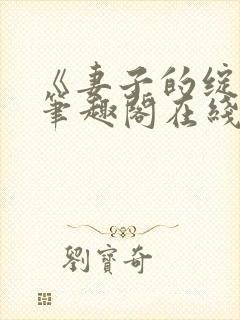 《妻子的绽
笔趣阁在线
劉寶奇